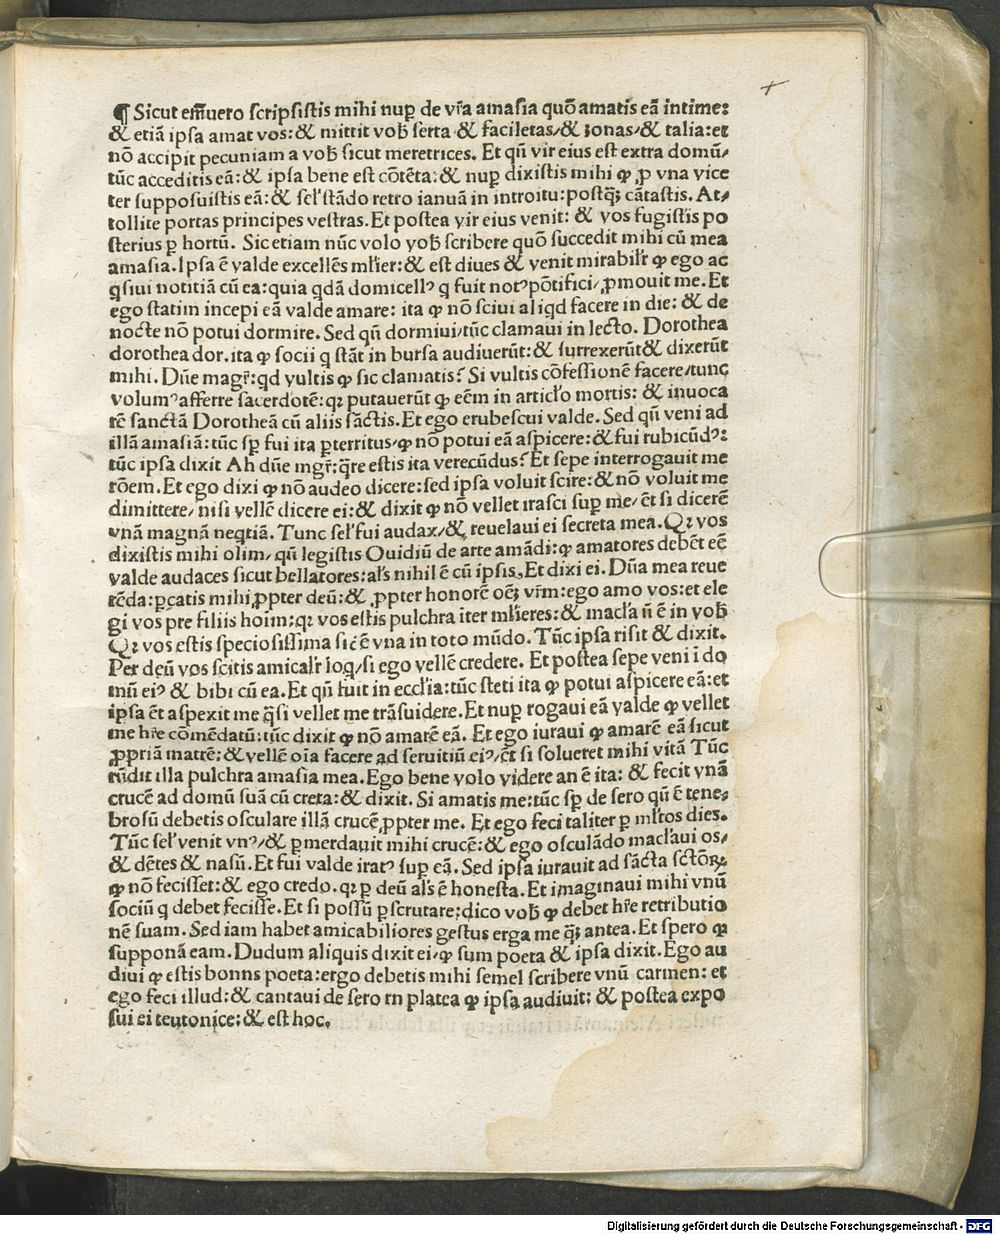 +
¶ Sicut em̃uero scripsistis mihi nuꝑ de vr̃a amasia quõ amatis eã intime:
& etiã ipsa amat vos: & mittit vob̃ serta & faciletas/& zonas/& talia: et
nõ accipit pecuniam a vob̃ sicut meretrices. Et qñ vir eius est extra domũ/
tũc acceditis eã: & ipsa bene est cõtẽta: & nuꝑ dixistis mihi ꝙ ꝓ vna vice
ter supposuistis eã: & sel̃ stãdo retro ianuã in introitu: postq̃ʒ cãtastis. At⸗
tollite portas principes vestras. Et postea vir eius venit: & vos fugistis po
sterius ꝑ hortũ. Sic etiam nũc volo vob̃ scribere quõ succedit mihi cũ mea
amasia. Ipsa ẽ valde excellẽs ml̃ier: & est diues & venit mirabilr̃ ꝙ ego ac
q̃siui notitiã cũ ea: quia q̃dã domicellꝰ q̃ fuit notꝰ põtifici/ꝓmouit me. Et
ego statim incepi eã valde amare: ita ꝙ nõ sciui aliq̃d facere in die: & de
nocte nõ potui dormire. Sed qñ dormiui/tũc clamaui in lecto. Dorothea
dorothea dor. ita ꝙ socii q̃ stãt in bursa audiuerũt: & surrexerũt & dixerũt
mihi. Dñe magr̃: q̃d vultis ꝙ sic clamatis? Si vultis cõfessionẽ facere/tunc
volumꝰ afferre sacerdotẽ: qꝛ putauerũt ꝙ eẽm in articl̃o mortis: & inuoca
rẽ sanctã Dorotheã cũ aliis sãctis. Et ego erubescui valde. Sed qñ veni ad
illã amasiã: tũc sꝑ fui ita ꝑterritus/ꝙ nõ potui eã aspicere: & fui rubicũdꝰ:
tũc ipsa dixit Ah dñe mgr̃: q̃re estis ita verecũdus? Et sepe interrogauit me
rõem. Et ego dixi ꝙ nõ audeo dicere: sed ipsa voluit scire: & nõ voluit me
dimittere/nisi vellẽ dicere ei: & dixit ꝙ nõ vellet irasci suꝑ me/ẽt si dicerẽ
vnã magnã neq̃tiã. Tunc sel̃ fui audax/& reuelaui ei secreta mea. Qꝛ vos
dixistis mihi olim/qñ legistis Ouidiũ de arte amãdi: ꝙ amatores debẽt eẽ
valde audaces sicut bellatores: al̃s nihil ẽ cũ ipsis. Et dixi ei. Dña mea reue
rẽda: ꝑcatis mihi ꝓpter deũ: & ꝓpter honorẽ oẽʒ vr̃m: ego amo vos: et ele
gi vos pre filiis hoim: qꝛ vos estis pulchra ĩter ml̃ieres: & macl̃a ñ ẽ in vob̃
Qꝛ vos estis speciosissima sic̃ ẽ vna in toto mũdo. Tũc ipsa risit & dixit.
Per deũ vos scitis amicalr̃ loq̃/si ego vellẽ credere. Et postea sepe veni ĩ do
mũ eiꝰ & bibi cũ ea. Et qñ fuit in eccl̃ia: tũc steti ita ꝙ potui aspicere eã: et
ipsa ẽt aspexit me q̃si vellet me trãsuidere. Et nuꝑ rogaui eã valde ꝙ vellet
me hr̃e cõmẽdatũ: tũc dixit ꝙ nõ amarẽ eã. Et ego iuraui ꝙ amarẽ eã sicut
ꝓpriã matrẽ: & vellẽ oĩa facere ad seruitiũ eiꝰ/ẽt si solueret mihi vitã Tũc
rñdit illa pulchra amasia mea. Ego bene volo videre an ẽ ita: & fecit vnã
crucẽ ad domũ suã cũ creta: & dixit. Si amatis me: tũc sꝑ de sero qñ ẽ tene⸗
brosũ debetis osculare illã crucẽ ꝓpter me. Et ego feci taliter ꝑ ml̃tos dies.
Tũc sel̃ venit vnꝰ/& ꝑmerdauit mihi crucẽ: & ego osculãdo macl̃aui os/
& dẽtes & nasũ. Et fui valde iratꝰ suꝑ eã. Sed ipsa iurauit ad sãcta sctõꝝ
ꝙ nõ fecisset: & ego credo. qꝛ ꝑ deũ al̃s ẽ honesta. Et imaginaui mihi vnũ
sociũ q̃ debet fecisse. Et si possũ ꝑscrutare: dico vob̃ ꝙ debet hr̃e retributio
nẽ suam. Sed iam habet amicabiliores gestus erga me q̃ʒ antea. Et spero ꝙ
supponã eam. Dudum aliquis dixit ei/ꝙ sum poeta & ipsa dixit. Ego au
diui ꝙ estis bonns poeta: ergo debetis mihi semel scribere vnũ carmen: et
ego feci illud: & cantaui de sero rn platea ꝙ ipsa audiuit: & postea expo
sui ei teutonice: & est hoc.
Digitalisierung gefördert durch die Deutsche Forschungsgemeinschaft - DFG